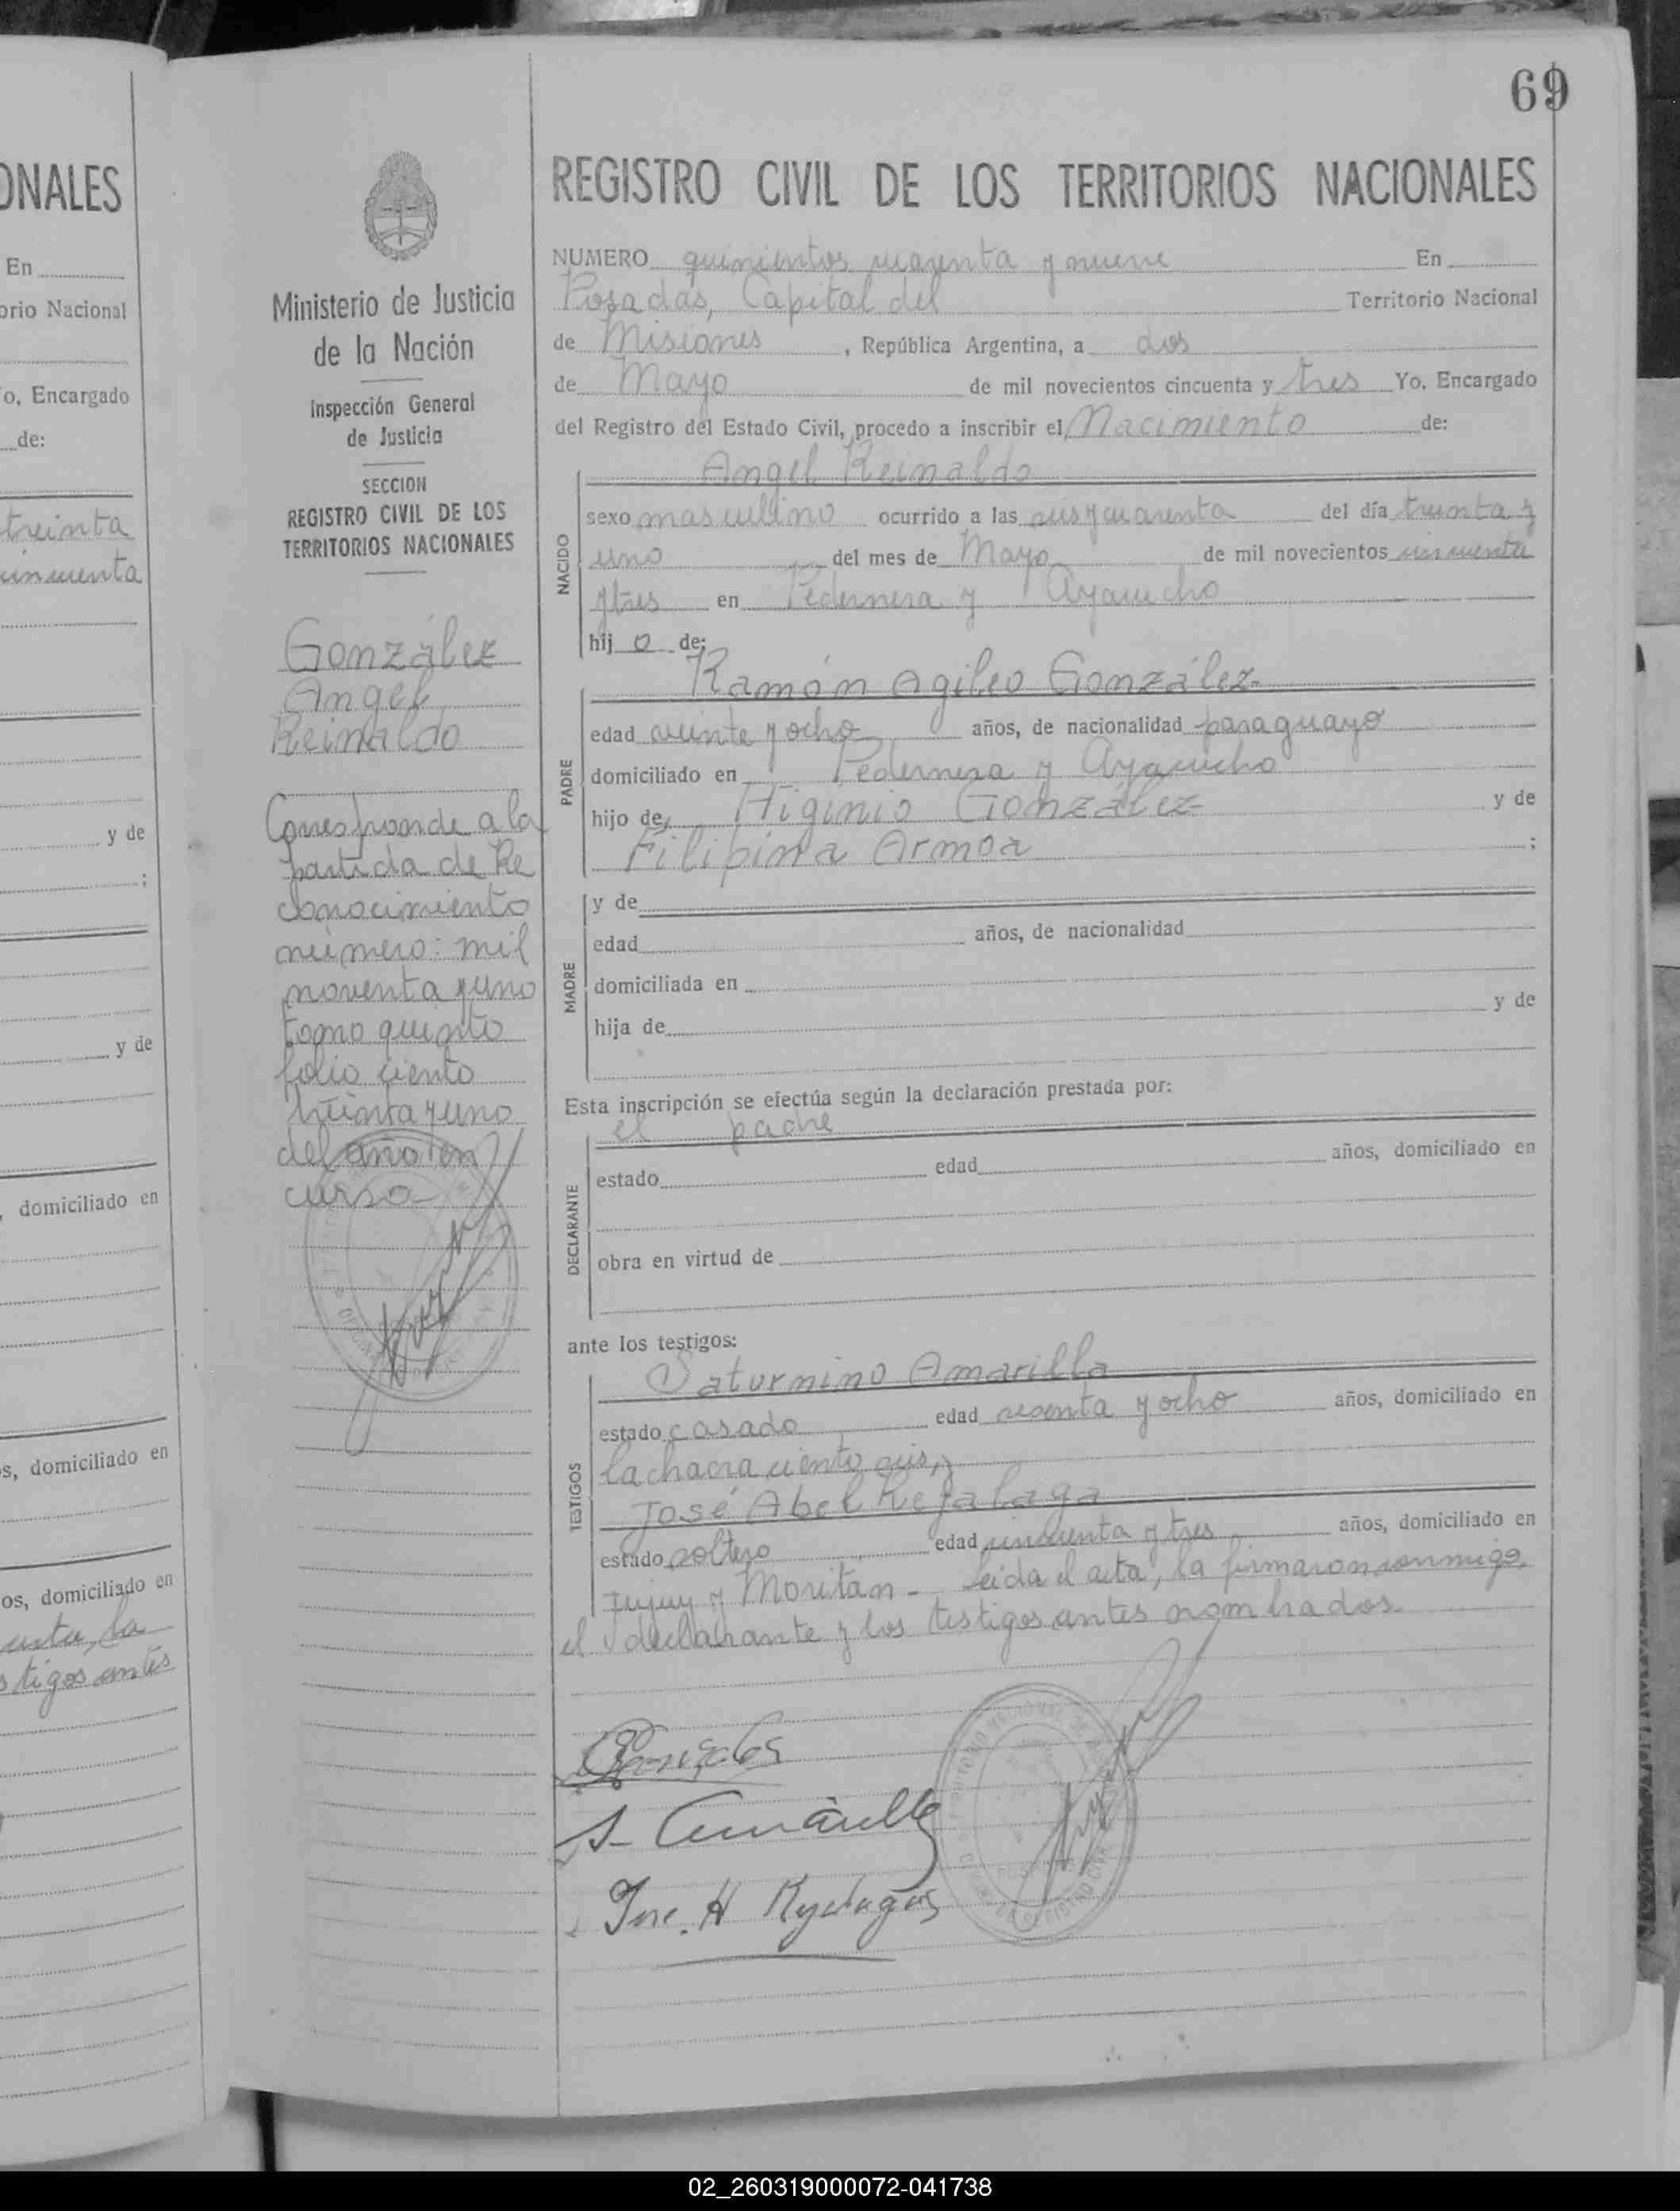 69
ONALES
En
orio Nacional
o, Encargado
de:
treinta
cincuenta
y de
;
y de
domiciliado en
s, domiciliado en
os, domiciliado en
la
stigos antes
Ministerio de Justicia
de la Nación
Inspección General
de Justicia
SECCION
REGISTRO CIVIL DE LOS
TERRITORIOS NACIONALES
González
Angel
Reinaldo
Corresponde a la
partida de Re
conocimiento
número: mil
noventa y uno
tomo quinto
folio ciento
treinta y uno
del año en
curso
REGISTRO CIVIL DE LOS TERRITORIOS NACIONALES
NUMERO quinientos cuarenta y nueve En
Posadas, Capital del Territorio Nacional
de Misiones, República Argentina, a dos
de Mayo de mil novecientos cincuenta y tres Yo, Encargado
del Registro del Estado Civil, procedo a inscribir el Nacimiento de:
Angel Reinaldo
NACIDO
sexo masculino ocurrido a las seis y cuarenta del día treinta y
uno del mes de Mayo de mil novecientos cincuenta
y tres en Pedernera y Ayacucho
hijo de:
Ramón Agileo González
PADRE
edad veinte y ocho años, de nacionalidad paraguayo
domiciliado en Pedernera y Ayacucho
hijo de Higinio González y de
Filipina Armoa ;
MADRE
y de
edad años, de nacionalidad
domiciliada en
hija de y de
Esta inscripción se efectúa según la declaración prestada por:
el padre
DECLARANTE
estado edad años, domiciliado en
obra en virtud de
ante los testigos:
Saturnino Amarilla
TESTIGOS
estado casado edad sesenta y ocho años, domiciliado en
la chacra ciento seis, y
José Abel Rejalaga
estado soltero edad cincuenta y tres años, domiciliado en
Jujuy y Moritan - Leida el acta, la firmaron conmigo,
el declarante y los testigos antes nombrados
S. Amarilla
02_260319000072-041738